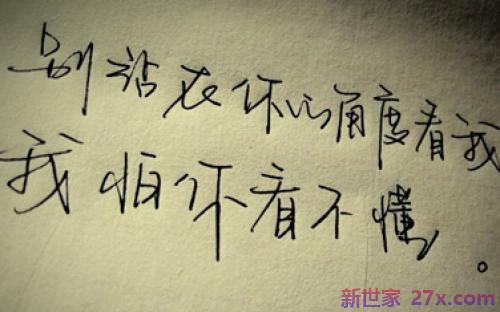 别站在你的角度看我
我怕你看不懂。
新世家 27x.com